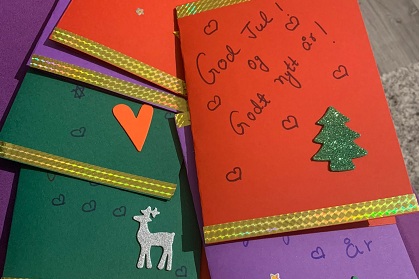 God Jul!
og
Godt nytt år!
år